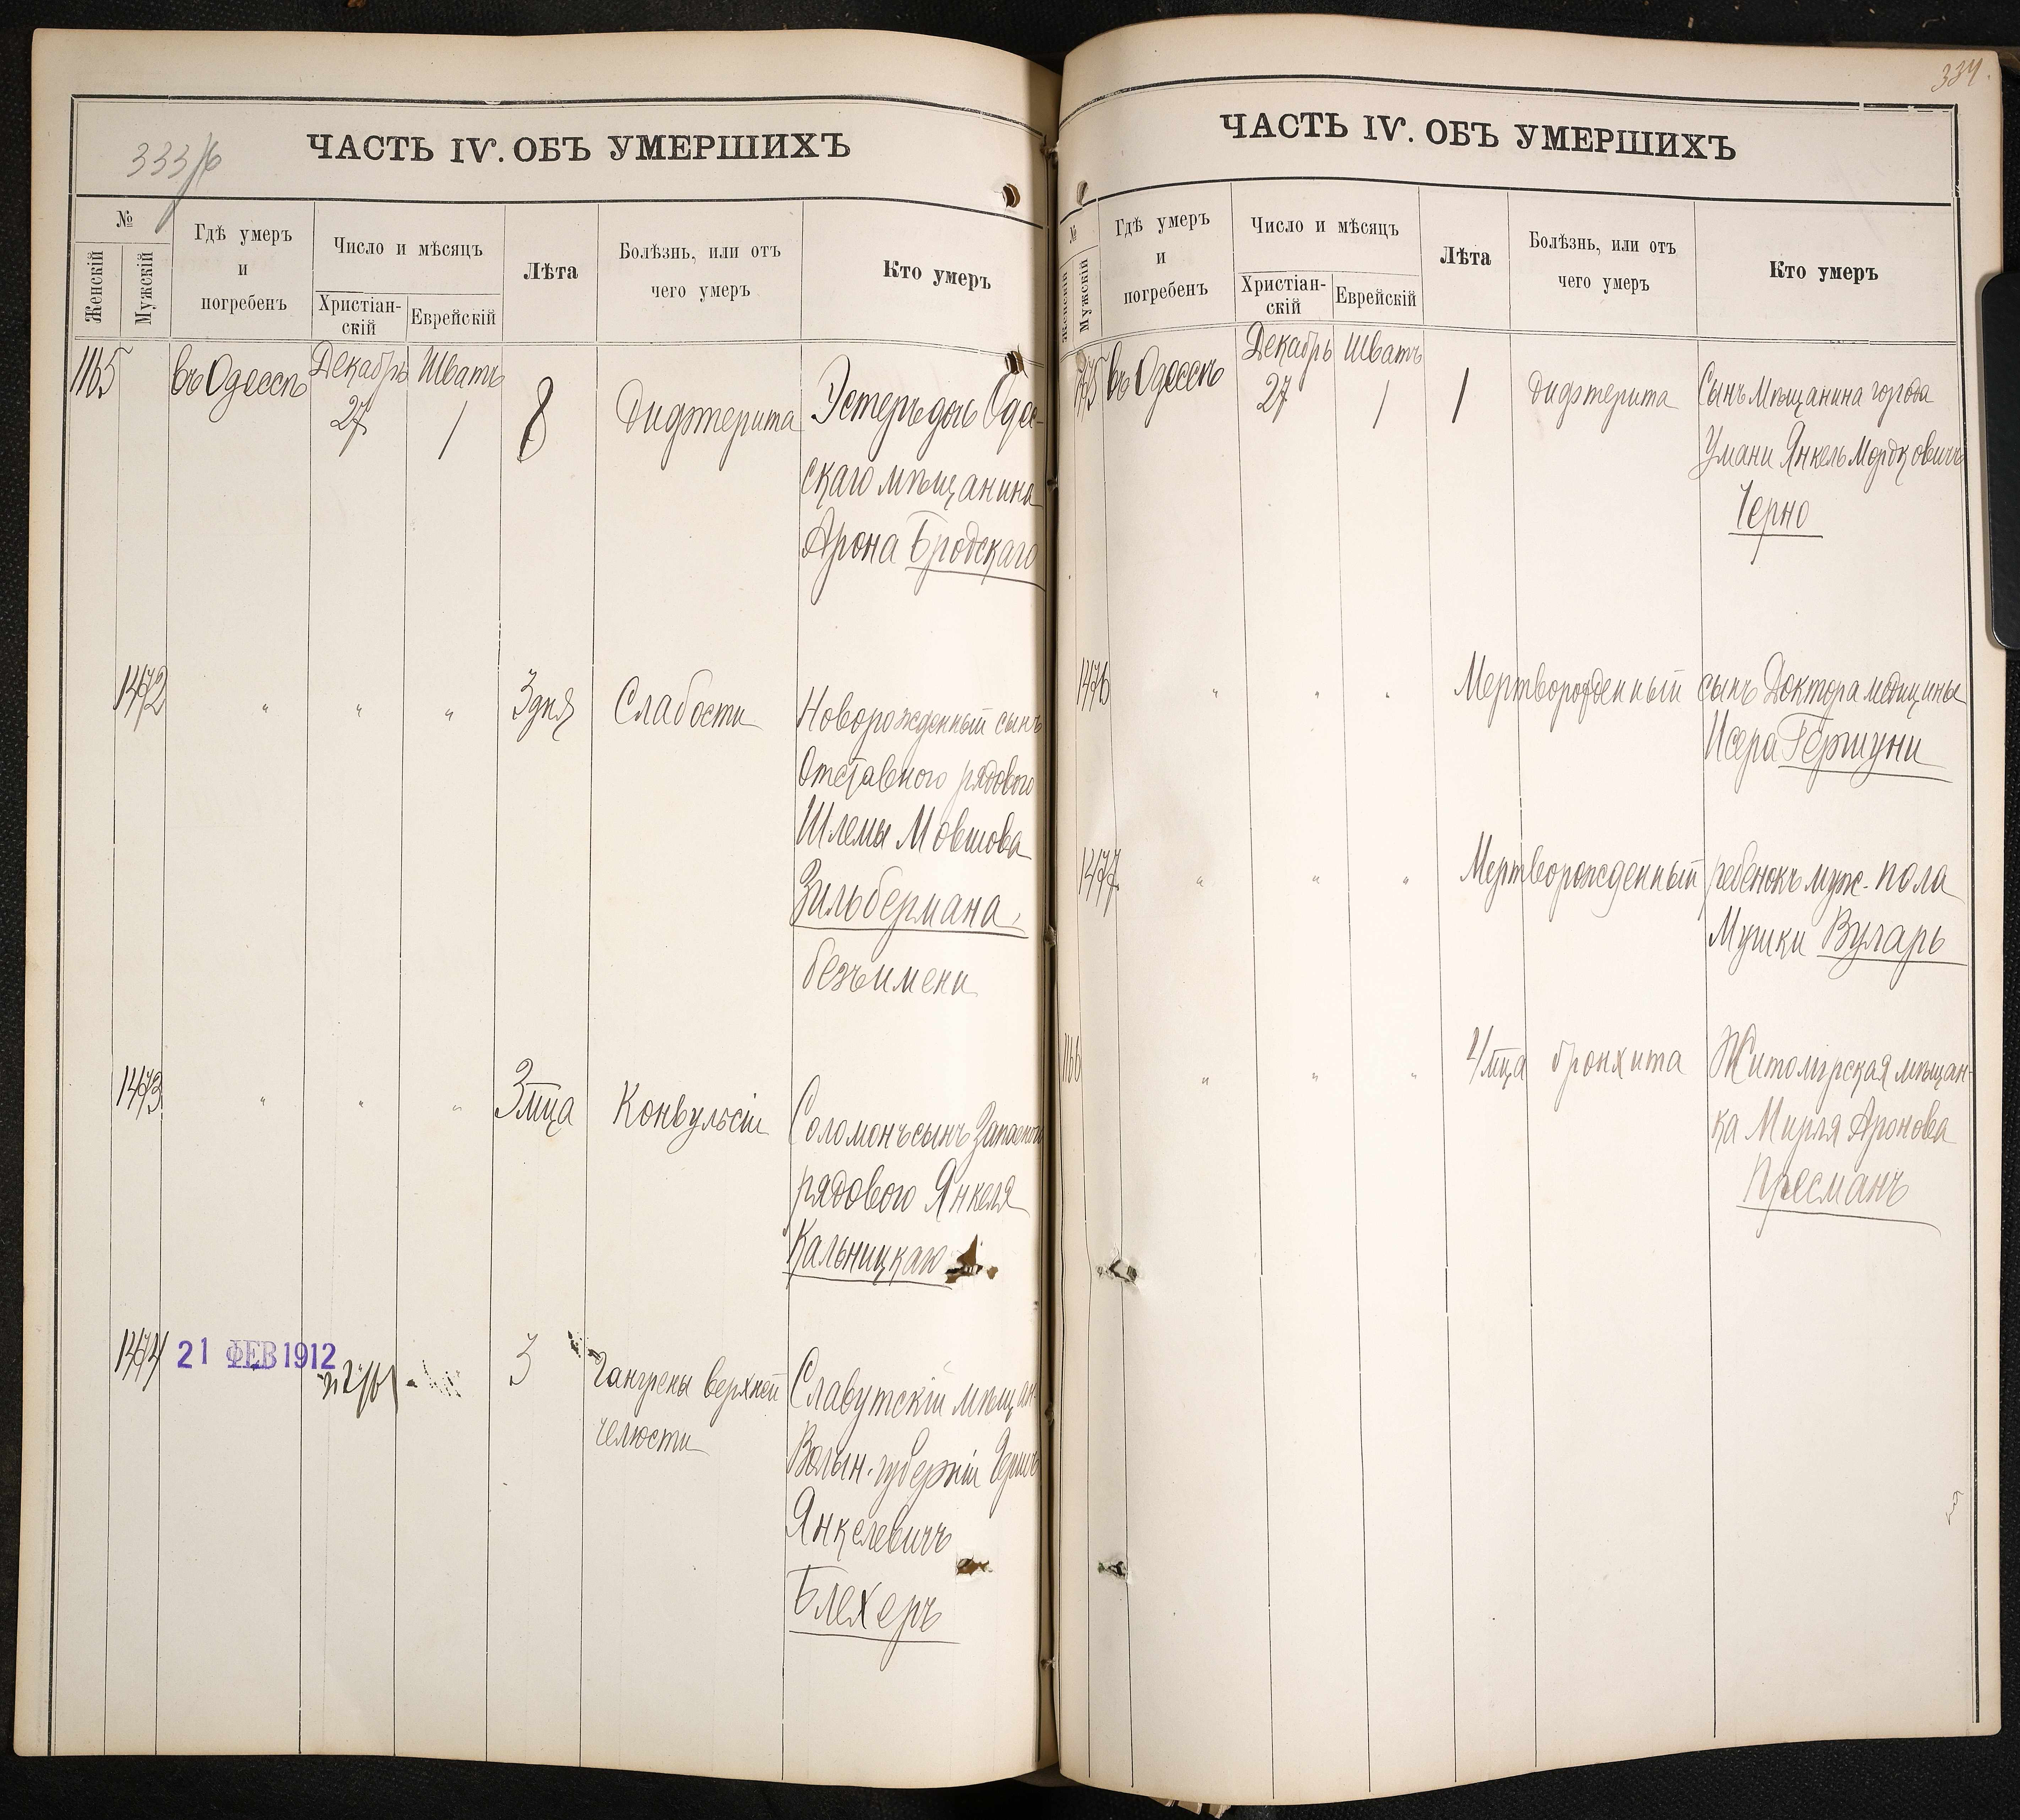 333/б
ЧАСТЬ IV. ОБЪ УМЕРШИХЪ
№
Женскій
Мужскій
Гдѣ умеръ
и
погребенъ
Число и мѣсяцъ
Христіан-
скій
Еврейскій
Лѣта
Болѣзнь, или отъ
чего умеръ
Кто умеръ
1165 въ Одессѣ Декабрь 27 Шватъ 1 8 Дифтерита Эстеръ дочь Одес-
скаго мѣщанина
Арона Бродскаго
1472 " " " 3 дня Слабости Новорожденный сынъ
Отставного рядового
Шлемы Мовшова
Зильбермана
безъ имени
1473 " " " 3 мца Конвульсіи Соломонъ сынъ Запасного
рядового Янкеля
Кальницкаго
1474 21 ФЕВ 1912 3 Гангрены верхней Славутскій мѣщан
челюсти Волын. губерніи
Янкелевичъ
Блехеръ
334.
ЧАСТЬ IV. ОБЪ УМЕРШИХЪ
№
Женскій
Мужскій
Гдѣ умеръ
и
погребенъ
Число и мѣсяцъ
Христіан-
скій
Еврейскій
Лѣта
Болѣзнь, или отъ
чего умеръ
Кто умеръ
1475 въ Одессѣ Декабрь 27 Шватъ 1 1 дифтерита Сынъ Мѣщанина города
Умани Янкель Мордковичъ
Черно
1476 " " " Мертворожденный сынъ Доктора медицины
Исера Гершуни
1477 " " " Мертворожденный ребенокъ муж. пола
Мушки Вуларь
1166 " " " мца бронхита Житомірская мѣщан-
ка Мирля Аронова
Пресманъ